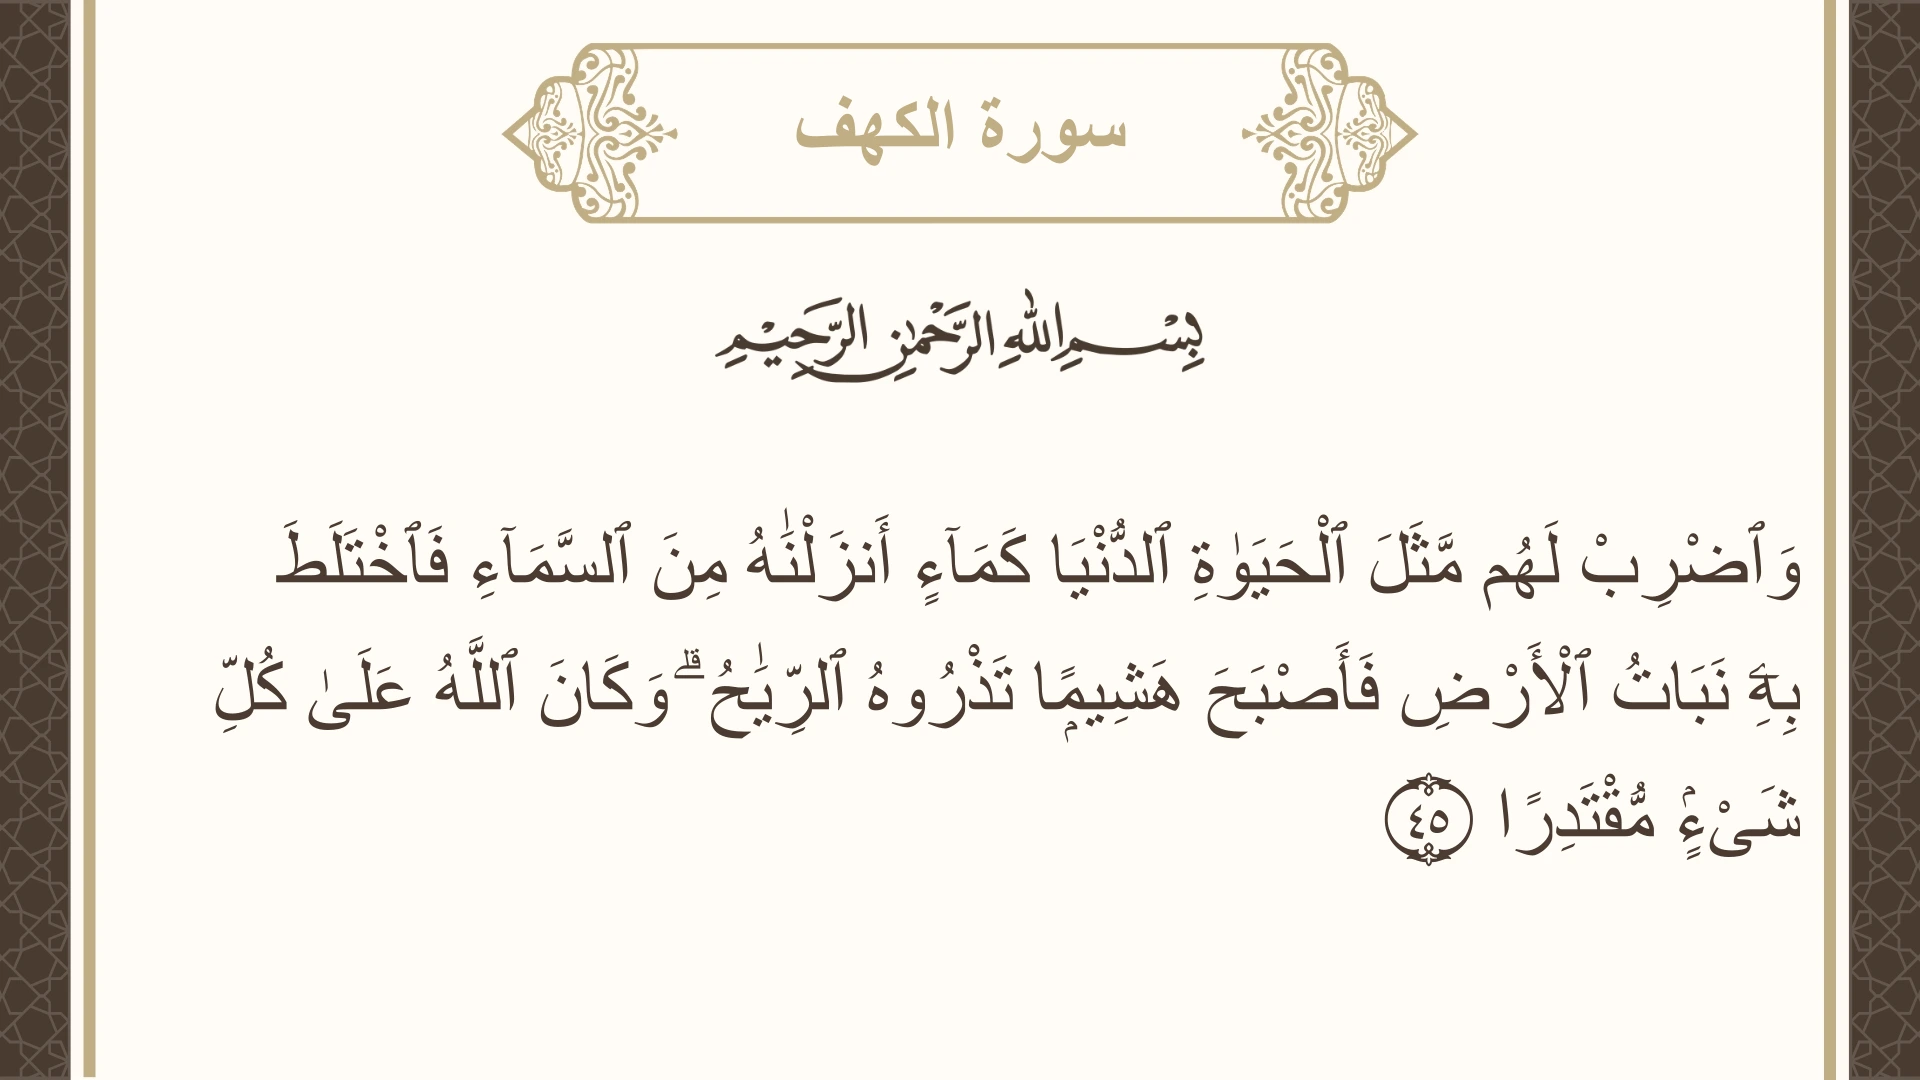 سورة الكهف
بِسْمِ اللهِ الرَّحْمٰنِ الرَّحِيْمِ
وَٱضْرِبْ لَهُم مَّثَلَ ٱلْحَيَوٰةِ ٱلدُّنْيَا كَمَآءٍ أَنزَلْنَٰهُ مِنَ ٱلسَّمَآءِ فَٱخْتَلَطَ
بِهِۦ نَبَاتُ ٱلْأَرْضِ فَأَصْبَحَ هَشِيمًۭا تَذْرُوهُ ٱلرِّيَٰحُ ۗ وَكَانَ ٱللَّهُ عَلَىٰ كُلِّ
شَىْءٍۢ مُّقْتَدِرًا ٤٥